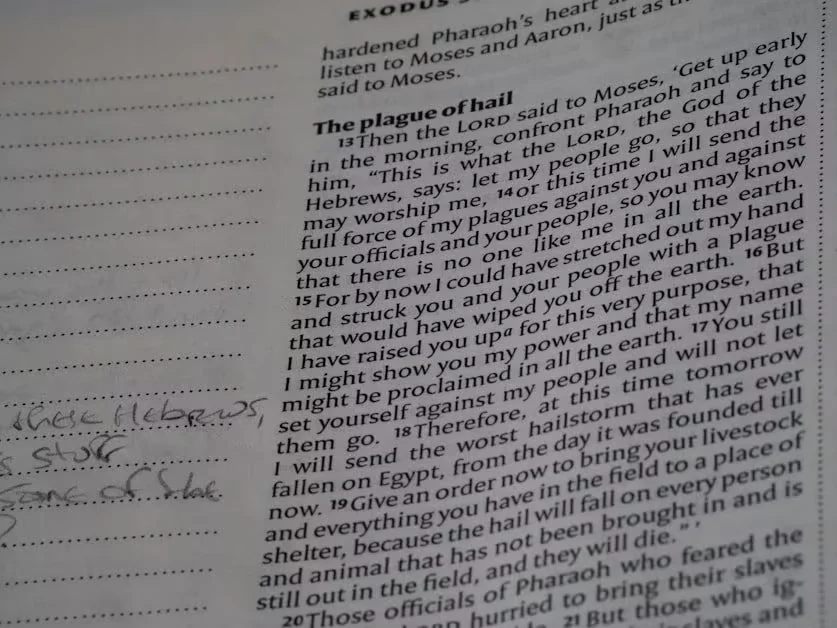 EXODUS
hardened Pharaoh's heart
listen to Moses and Aaron, just as
said to Moses.
The plague of hail
13 Then the LORD said to Moses, ‘Get up early
in the morning, confront Pharaoh and say to
him, “This is what the LORD, the God of the
Hebrews, says: let my people go, so that they
may worship me, 14 or this time I will send the
full force of my plagues against you and against
your officials and your people, so you may know
that there is no one like me in all the earth.
15 For by now I could have stretched out my hand
and struck you and your people with a plague
that would have wiped you off the earth. 16 But
I have raised you up a for this very purpose, that
I might show you my power and that my name
might be proclaimed in all the earth. 17 You still
set yourself against my people and will not let
them go. 18 Therefore, at this time tomorrow
I will send the worst hailstorm that has ever
fallen on Egypt, from the day it was founded till
now. 19 Give an order now to bring your livestock
and everything you have in the field to a place of
shelter, because the hail will fall on every person
and animal that has not been brought in and is
still out in the field, and they will die.” ’
20 Those officials of Pharaoh who feared the
hurried to bring their slaves
21 But those who ig-
slaves and
these Hebrews,
stuff
some of